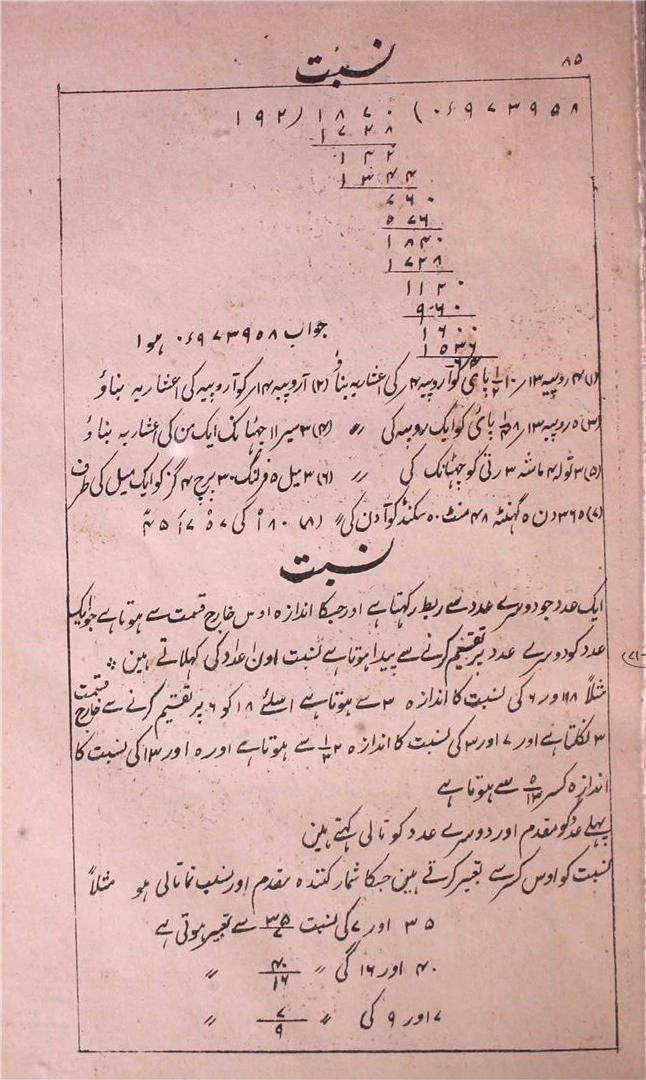 نسبت
۸۵
۱۹۲)۱۸۷۰(۰۶۹۷۳۹۵۸
۱۷۲۸
۱۴۲
۱۳۴۴
۷۶۰
۵۷۶
۱۸۴۰
۱۷۲۸
۱۱۲۰
۹۶۰
۱۶۰۰
۱۵۳۶
جواب ۰۶۹۷۳۹۵۸ ہوا
(۱) ۴ روپیہ ۱۳ر ۱۰ ۱/۲ پائی کو ۱ روپیہ ۴ر کی اعشاریہ بناؤ (۲) ۱ روپیہ ۱۴ر کو ۱ روپیہ کی اعشاریہ بناؤ
(۳) ۵ روپیہ ۱۳ر ۸ ۱/۴ پائی کو ایک روپیہ کی 〃 (۴) ۳ سیر ۱۱ چھٹانک ایک من کی اعشاریہ بناؤ
(۵) ۳ تولہ ۴ ماشہ ۳ رتی کو چھٹانک کی 〃 (۶) ۳ میل ۵ فرلنگ ۳۰ پرچ ۴ گز کو ایک میل کی طرف
(۷) ۳۶۵ دن ۵ گھنٹہ ۴۸ منٹ ۵۰ سکنڈ کو ۱ دن کی 〃 (۸) ۱۸۰° کی ۵۷° ۱۷′ ۴۵″
نسبت
ایک عدد جو دوسرے عدد سے ربط رکھتا ہے اور جسکا اندازہ اوس خارج قسمت سے ہوتا ہے جو ایک
عدد کو دوسرے عدد پر تقسیم کرنے سے پیدا ہوتا ہے نسبت اون اعداد کی کہلاتے ہین
مثلاً ۱۸ اور ۶ کی نسبت کا اندازہ ۳ سے ہوتا ہے اسلئے ۱۸ کو ۶ پر تقسیم کرنے سے خارج قسمت
۳ نکلتا ہے اور ۷ اور ۳ کی نسبت کا اندازہ ۲ ۱/۳ سے ہوتا ہے اور ۵ اور ۱۳ کی نسبت کا
اندازہ کسر ۵/۱۳ سے ہوتا ہے
پہلے عدد کو مقدم اور دوسرے عدد کو تالی کہتے ہین
نسبت کو اوس کسر سے تعبیر کرتے ہین جسکا شمار کنندہ مقدم اور نسب نما تالی ہو مثلاً
۳۵ اور ۷ کی نسبت ۳۵/۷ سے تعبیر ہوتی ہے
۴۰ اور ۱۶ کی 〃 ۴۰/۱۶ 〃
۷ اور ۹ کی 〃 ۷/۹ 〃